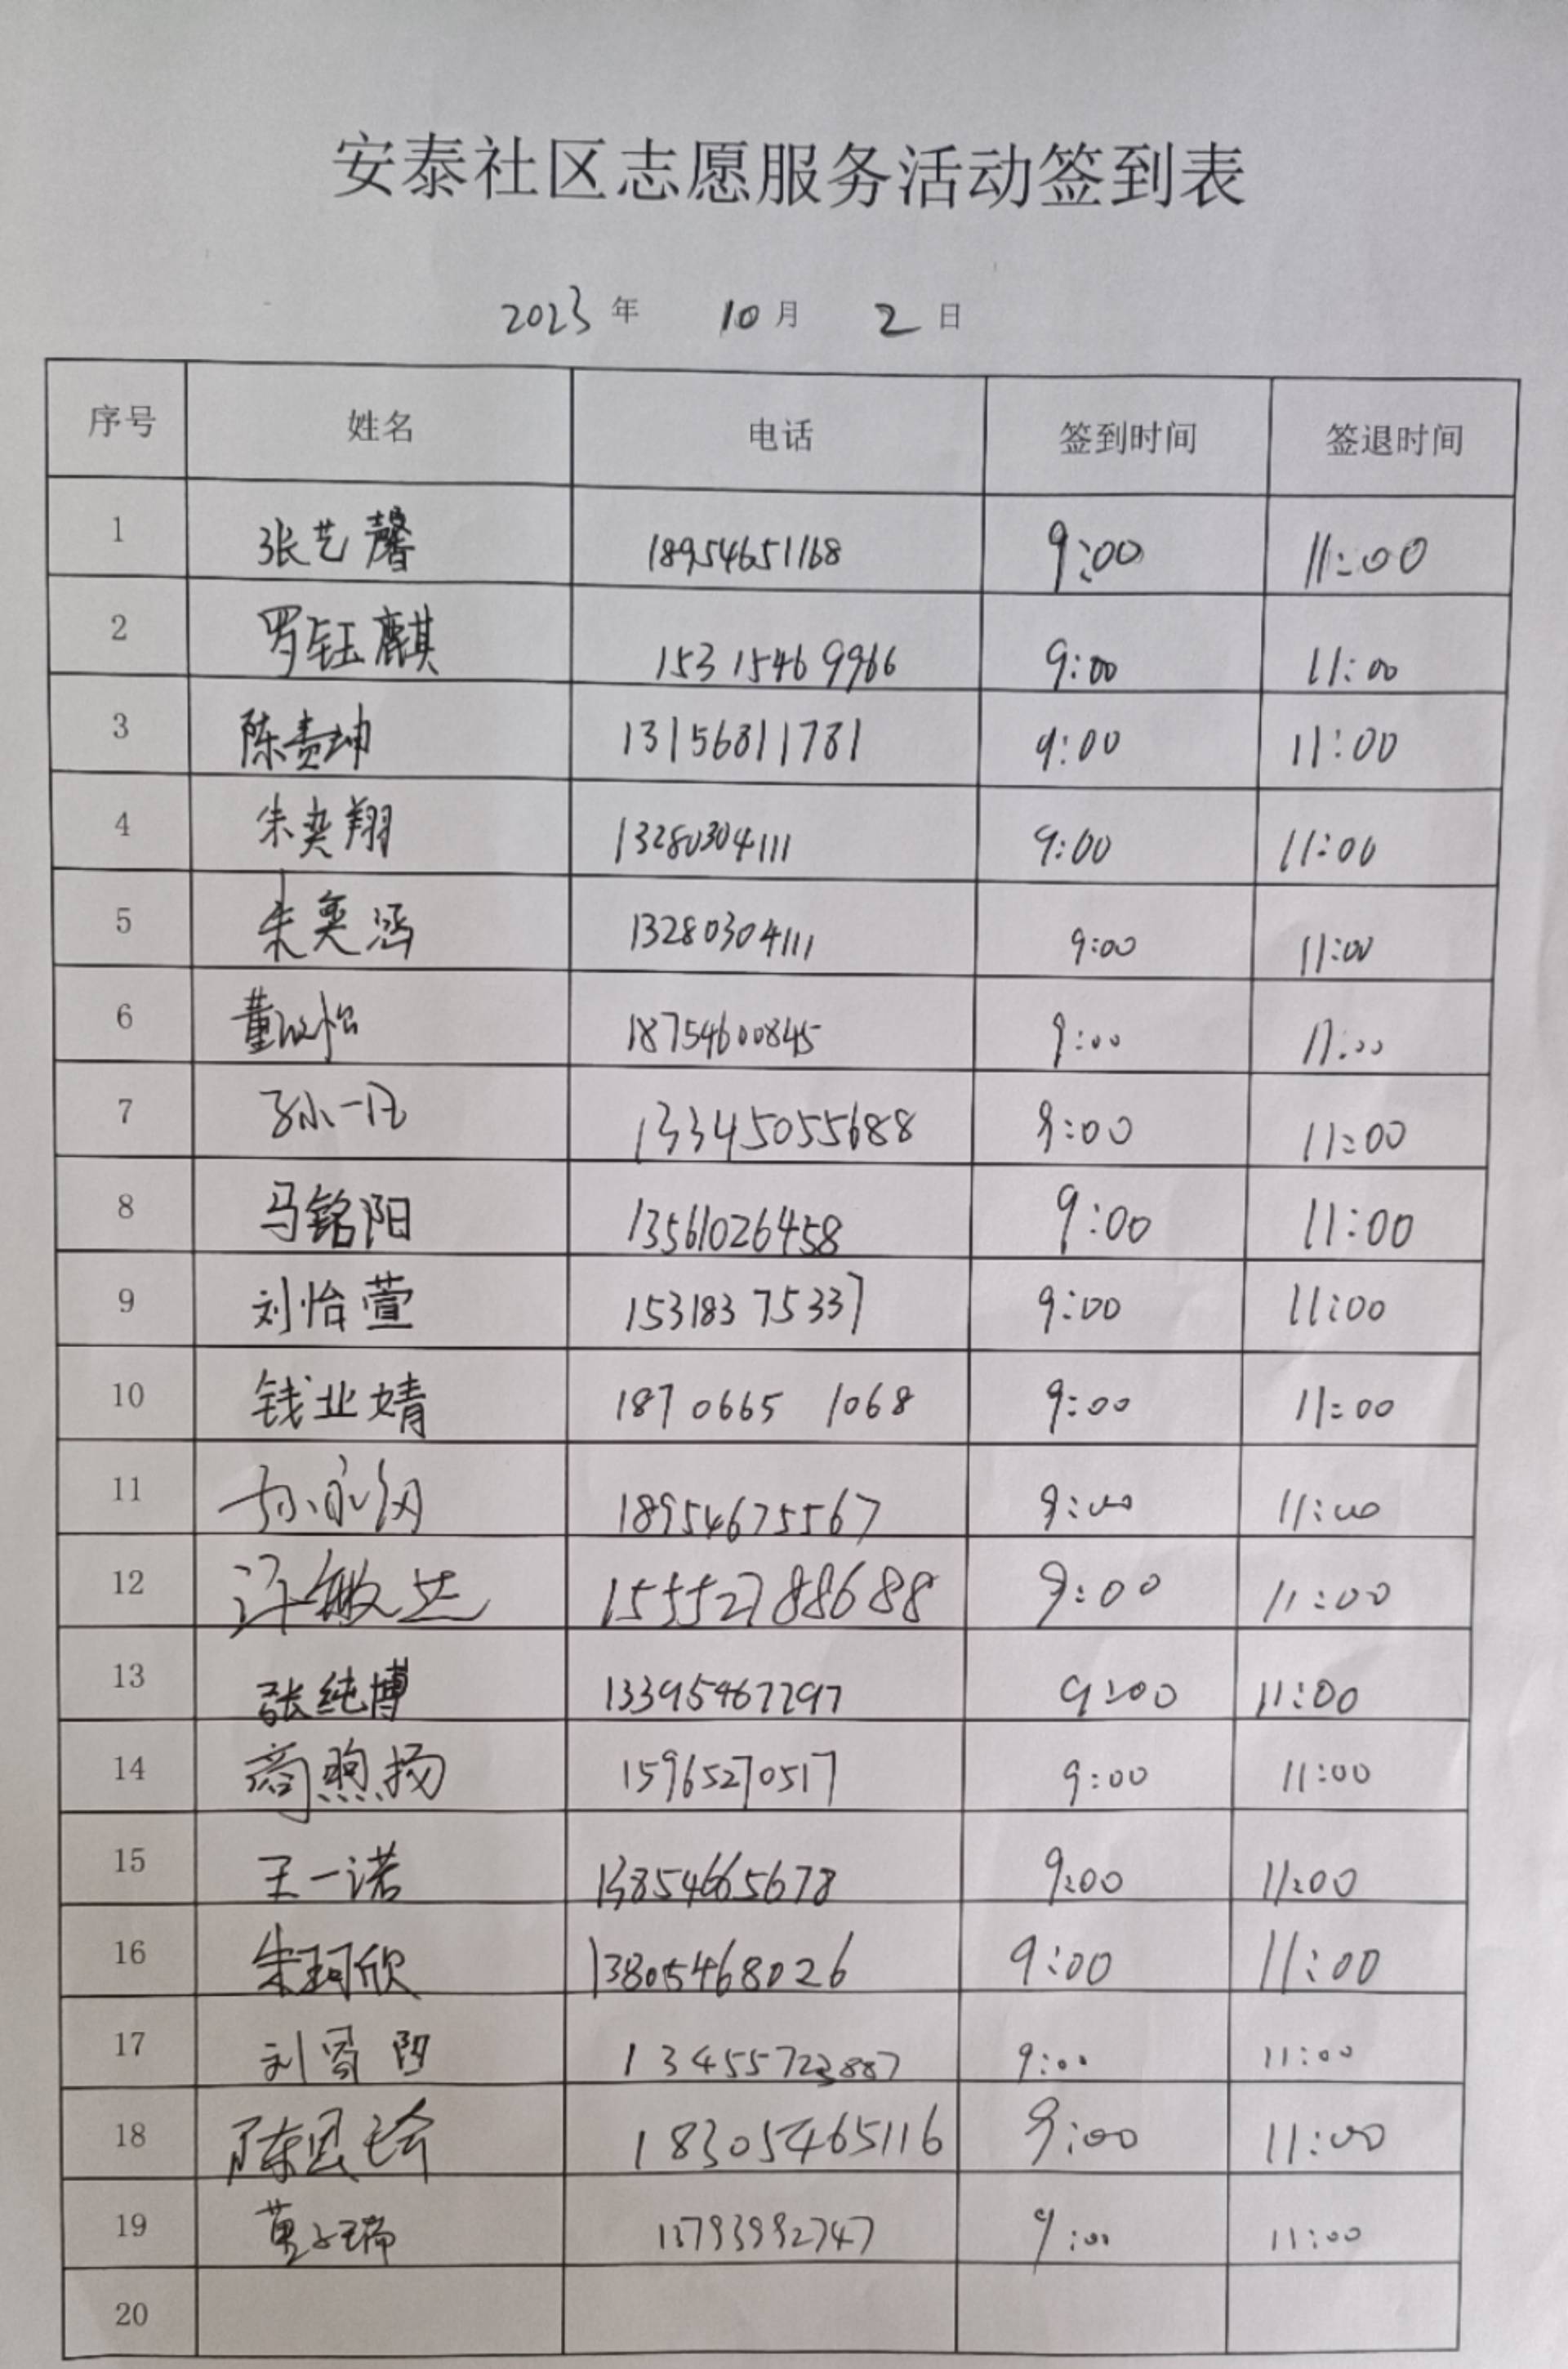 安泰社区志愿服务活动签到表
2023年 10月 2日
序号 姓名 电话 签到时间 签退时间
1 张艺馨 18954651168 9:00 11:00
2 罗钰麒 15315469966 9:00 11:00
3 陈贵坤 13156811781 9:00 11:00
4 朱奕翔 13280304111 9:00 11:00
5 朱奕涵 13280304111 9:00 11:00
6 18754600845 9:00 11:00
7 孙一凡 13345055688 9:00 11:00
8 马铭阳 13561026458 9:00 11:00
9 刘怡萱 15318375337 9:00 11:00
10 钱业婧 187 0665 1068 9:00 11:00
11 18954675567 9:00 11:00
12 15552788688 9:00 11:00
13 张纯博 13395467297 9:00 11:00
14 商煦扬 15965270517 9:00 11:00
15 王一诺 13854665678 9:00 11:00
16 朱珂欣 13805468026 9:00 11:00
17 9:00 11:00
18 18305465116 9:00 11:00
19 9:00 11:00
20